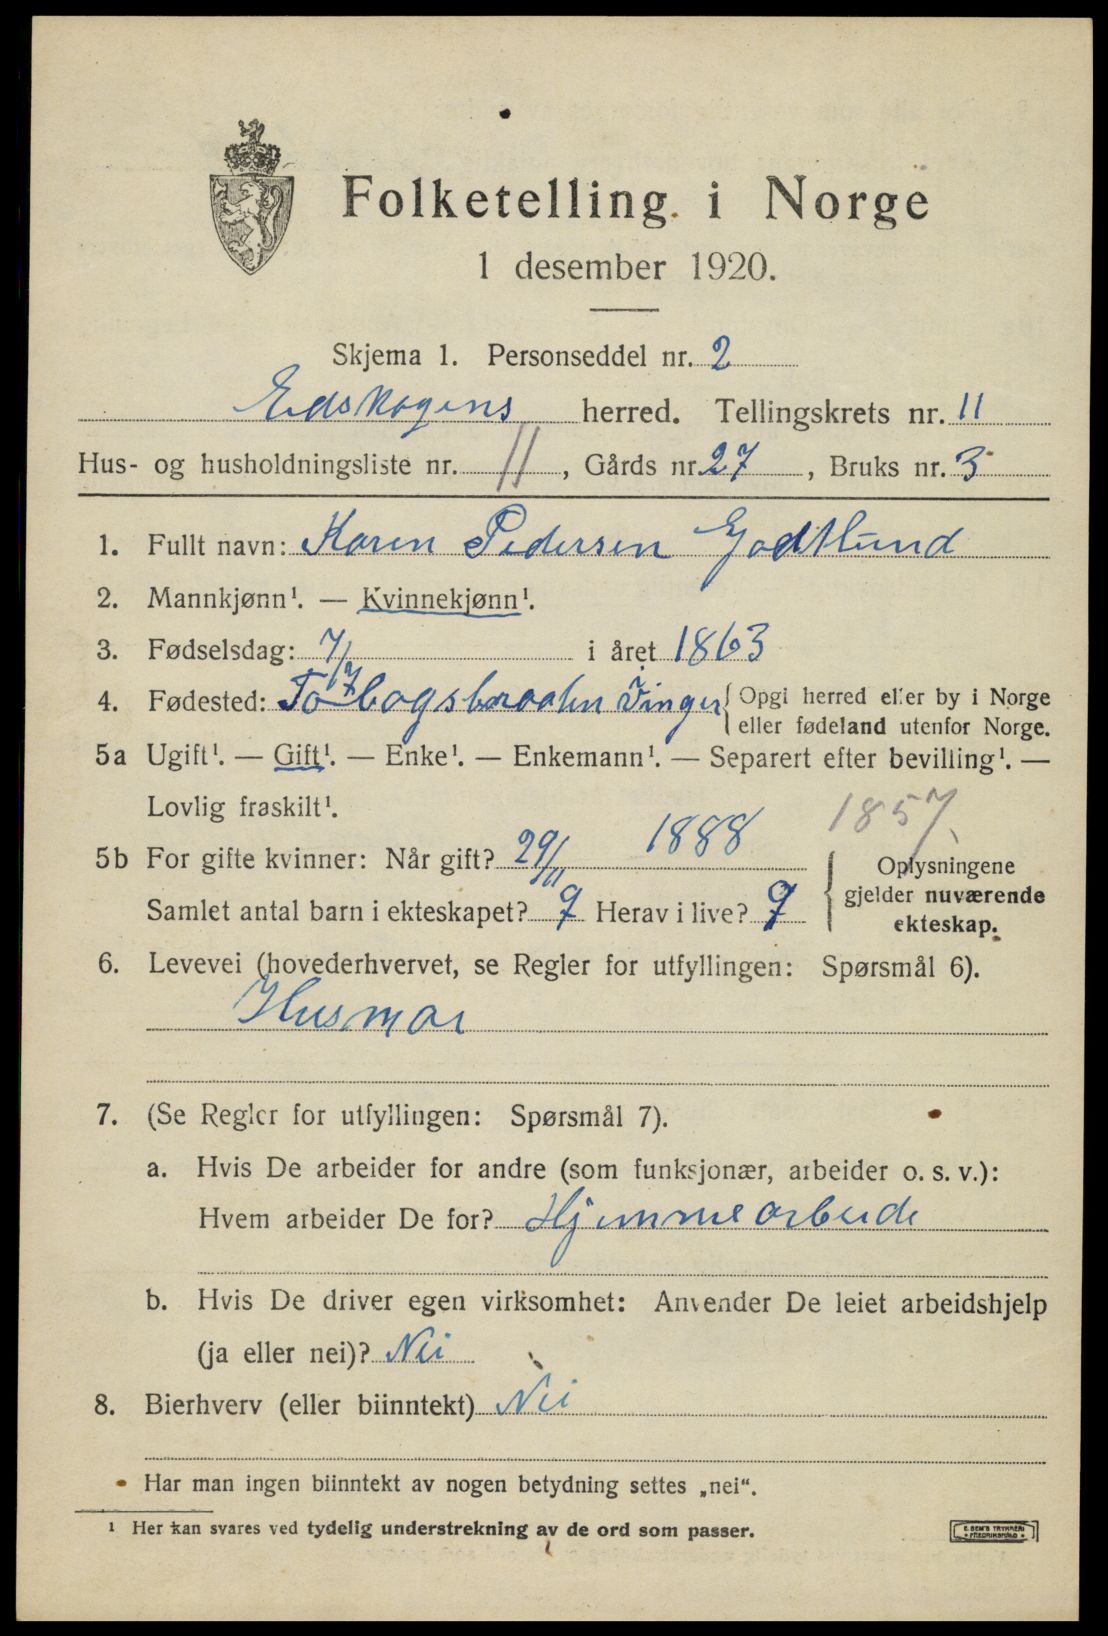 Folketelling i Norge
1 desember 1920.
Skjema 1. Personseddel nr. 2
Eidskogens herred. Tellingskrets nr. 11
Hus- og husholdningsliste nr. 11, Gårds nr. 27, Bruks nr. 3
1. Fullt navn: Karen Pedersen Godtlund
2. Mannkjønn¹. — Kvinnekjønn¹.
3. Fødselsdag: 7/7 i året 1863
4. Fødested: Vinger { Opgi herred eller by i Norge
eller fødeland utenfor Norge.
5a Ugift¹. — Gift¹. — Enke¹. — Enkemann¹. — Separert efter bevilling¹. —
Lovlig fraskilt¹.
1857
5b For gifte kvinner: Når gift? 29/11 1888
Samlet antal barn i ekteskapet? 9 Herav i live? 9
{ Oplysningene
gjelder nuværende
ekteskap.
6. Levevei (hovederhvervet, se Regler for utfyllingen: Spørsmål 6).
Husmor
7. (Se Regler for utfyllingen: Spørsmål 7).
a. Hvis De arbeider for andre (som funksjonær, arbeider o. s. v.):
Hvem arbeider De for? Hjemmearbeide
b. Hvis De driver egen virksomhet: Anvender De leiet arbeidshjelp
(ja eller nei)? Nei
8. Bierhverv (eller biinntekt) Nei
Har man ingen biinntekt av nogen betydning settes „nei“.
¹ Her kan svares ved tydelig understrekning av de ord som passer.
E. SEM'S TRYKKERI
FREDRIKSHALD